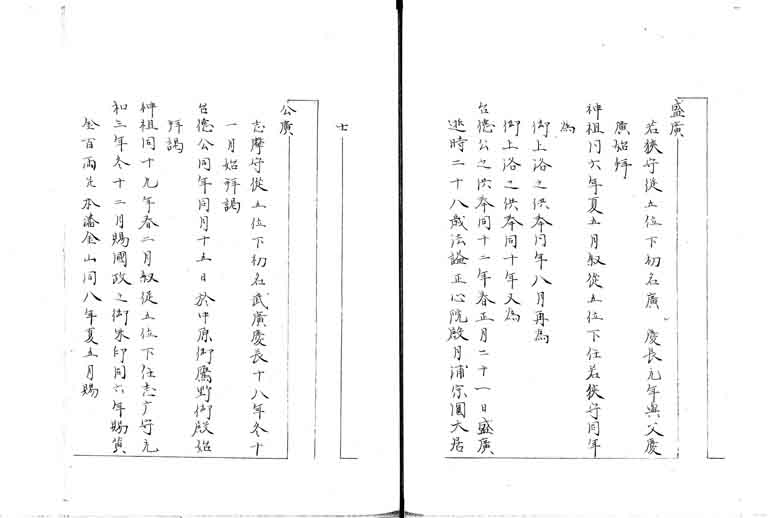 盛廣
若狹守從五位下初名廣 慶長元年與父慶
廣始拜
神祖同六年夏五月叙從五位下任若狹守同年
為
御上洛之供奉同年八月再為
御上洛之供奉同十年又為
台德公之供奉同十二年春正月二十一日盛廣
逝時二十八歲法謚正心院殿月浦宗圓大居
七
公廣
志摩守從五位下初名武廣慶長十八年冬十
一月始拜謁
台德公同年同月十五日於中原御鷹野御殿始
拜謁
神祖同十九年春二月叙從五位下任志广守元
和三年冬十二月賜國政之御朱印同六年賜貨
金百兩先本藩金山同八年夏五月賜